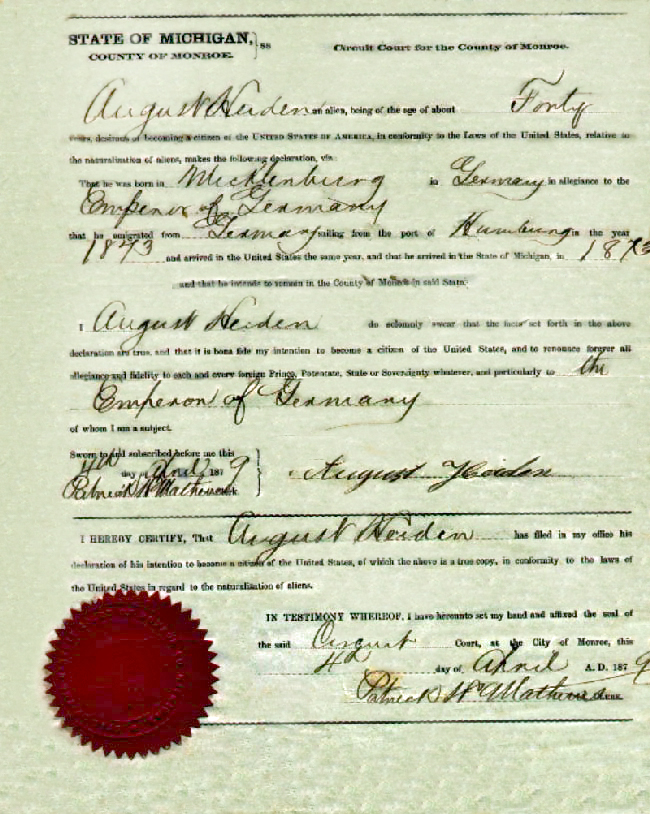 STATE OF MICHIGAN, } ss Circuit Court for the County of Monroe.
COUNTY OF MONROE.
August Heiden an alien, being of the age of about Forty
years, desirous of becoming a citizen of the UNITED STATES OF AMERICA, in conformity to the Laws of the United States, relative to
the naturalization of aliens, makes the following declaration, viz:
That he was born in Mecklenburg in Germany in allegiance to the
Emperor of Germany
that he emigrated from Germany sailing from the port of Hamburg in the year
1873 and arrived in the United States the same year, and that he arrived in the State of Michigan, in 1873
and that he intends to remain in the County of Monroe in said State.
I August Heiden do solemnly swear that the facts set forth in the above
declaration are true, and that it is bona fide my intention to become a citizen of the United States, and to renounce forever all
allegiance and fidelity to each and every foreign Prince, Potentate, State or Sovereignty whatever, and particularly to the
Emperor of Germany
of whom I am a subject.
Sworn to and subscribed before me this
4th day of April 1879 } August Heiden
Patrick H Mathews Clerk
I HEREBY CERTIFY, That August Heiden has filed in my office his
declaration of his intention to become a citizen of the United States, of which the above is a true copy, in conformity to the laws of
the United States in regard to the naturalization of aliens.
IN TESTIMONY WHEREOF, I have hereunto set my hand and affixed the seal of
the said Circuit Court, at the City of Monroe, this
4th day of April A. D. 1879
Patrick H Mathews CLERK.